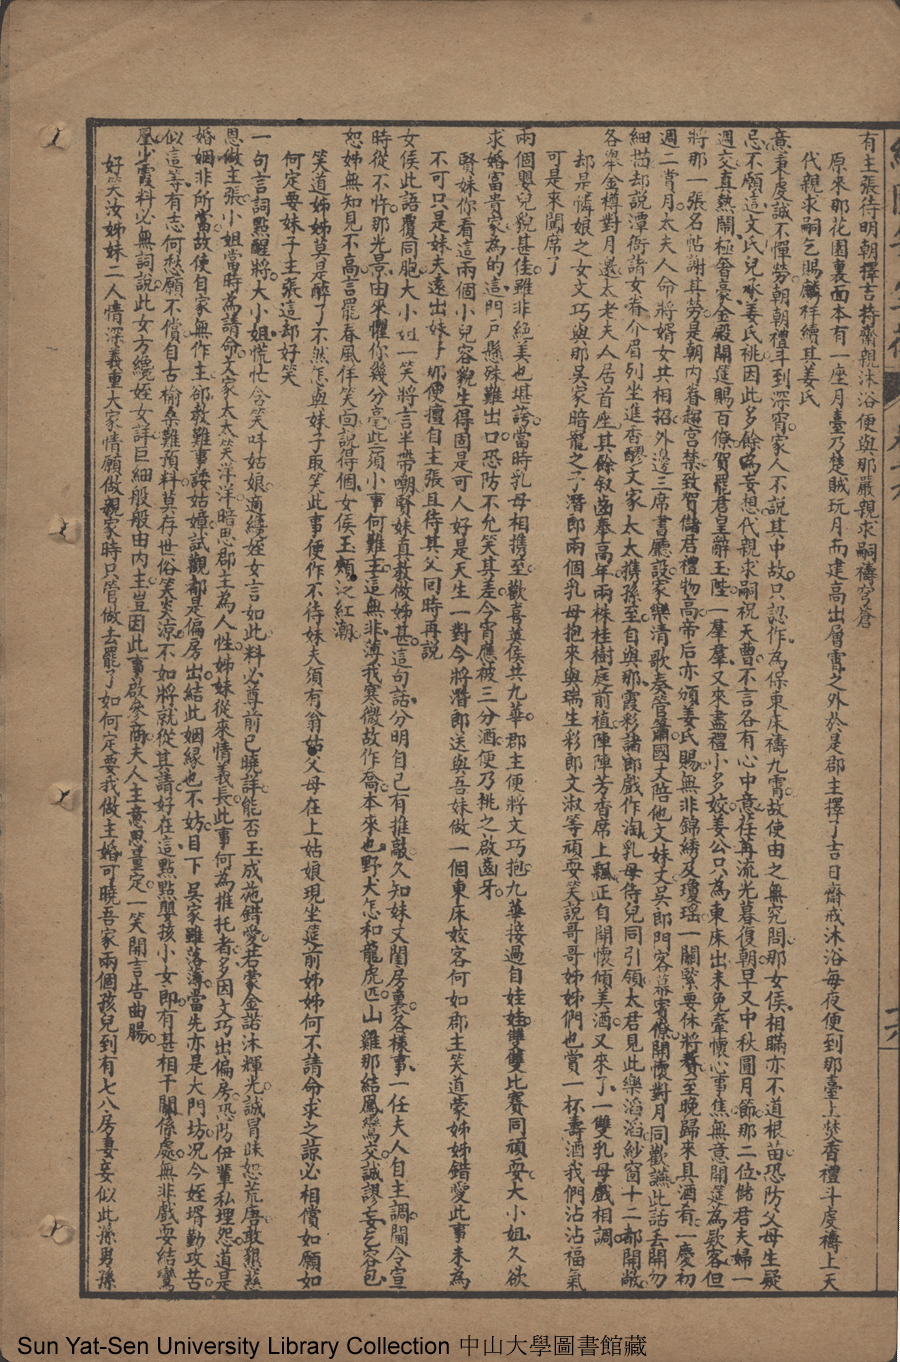 有主張待明朝擇吉持齋親沐浴便與那嚴親求嗣禱穹蒼
原來那花園裏面本有一座月臺乃楚賊玩月而建高出層霄之外於是郡主擇了吉日齋戒沐浴每夜便到那臺上焚香禮斗虔禱上天
代親求嗣乞賜麟祥續其姜氏
意秉虔誠不憚勞朝朝禮斗到深宵家人不説其中故只認作為保東床禱九霄故使由之無究問那女侯相瞞亦不道根苗恐防父母生疑
忌不願這文氏兒承姜氏祧因此多餘為妄想代親求嗣祝天曹不言各有心中意荏苒流光暮復朝早又中秋圓月節那二位儲君夫婦一
週交真熱鬧極奢豪金殿開筵賜百僚賀罷君皇辭玉陛一羣羣又來盡禮小多姣姜公只為東床出未免牽懷心事焦無意開筵為欵客但
將那一張名帖謝其勞是朝内眷趨宫禁致賀儲君禮物高帝后亦頒姜氏賜無非錦綉及瓊瑤一關緊要休將費至晚歸來具酒有一慶初
週二賞月太夫人命將婿女共相招外邊三席書廳設家樂清歌奏管簫國丈陪他文妹丈吴郎門客幕賓僚開懷對月同歡讌此話丢開勿
細描却説潭衙諸女眷介眉列坐進香醪文家太太携孫至自與那霞彩諸郎戲作淘乳母侍兒同引領太君見此樂滔滔紗窗十二都開敞
各舉金樽對月邀太老夫人居首座其餘叙齒奉高年兩株桂樹庭前植陣陣芳香席上飄正自開懷傾美酒又來了一雙乳母戲相調
却是憐娘之女文巧與那吴家暗寵之子潛郎兩個乳母抱來與瑞生彩郎文淑等頑耍笑説哥哥姊姊們也賞一杯壽酒我們沾沾福氣
可是來鬧席了
兩個嬰兒貌甚佳雖非絕美也堪誇當時乳母相携至歡喜英侯共九華郡主便將文巧抱九華接過自娃娃雙雙比賽同頑耍大小姐久欲
求婚富貴家為的這門戸懸殊難出口恐防不允笑其差今宵應被三分酒便乃桃之啟齒牙
賢妹你看這兩個小兒容貌生得固是可人好是天生一對今將潛郎送與吾妹做一個東床姣客何如郡主笑道蒙姊姊錯愛此事未為
不可只是妹夫遠出妹子那便擅自主張且待其父回時再説
女侯此語覆同胞大小姐一笑將言半帶嘲賢妹真教做姊甚這句話分明自己有推敲久知妹丈閨房裏各樣事一任夫人自主調閫令宣
時從不忤那光景由來懼你幾分毫些須小事何難主這無非薄我寒微故作喬本來也野犬怎和龍虎匹山雞那結鳳鸞交誠謬妄乞容包
恕姊無知見不高言罷春風佯笑向説得個女侯玉頰泛紅潮
笑道姊姊莫是醉了不然怎與妹子取笑此事便作不待妹夫須有翁姑父母在上姑娘現坐筵前姊姊何不請命求之諒必相償如願如
何定要妹子主張這却好笑
一句言詞點醒將大小姐慌忙含笑呌姑娘適纔姪女言如此料必尊前已曉詳能否玉成施錯愛若蒙金諾沐輝光誠冒昧恕荒唐敢懇慈
恩做主張小姐當時為請命文家太太笑洋洋暗思郡主為人性姊妹從來情義長此事何為推托者多因文巧出偏房恐防伊輩私埋怨道是
婚姻非所當故使自家無作主郤教難事諉姑嫜試觀都是偏房出結此姻縁也不妨目下吴家雖落薄當先亦是大門坊况今姪壻勤攻苦
似這等有志何愁願不償自古榆桑難預料莫存世俗笑炎涼不如將就從其請好在這點點嬰孩小女郎有甚相干關係處無非戲耍結鸞
凰少霞料必無詞說此女方纔姪女詳巨細般般由内主豈因此事啟參商夫人主意思量定一笑開言告曲腸
好笑汝姊妹二人情深義重大家情願做親家時只管做去罷了如何定要我做主婚可曉吾家兩個孩兒到有七八房妻妾似此孫男孫
Sun Yat-Sen University Library Collection 中山大學圖書館藏